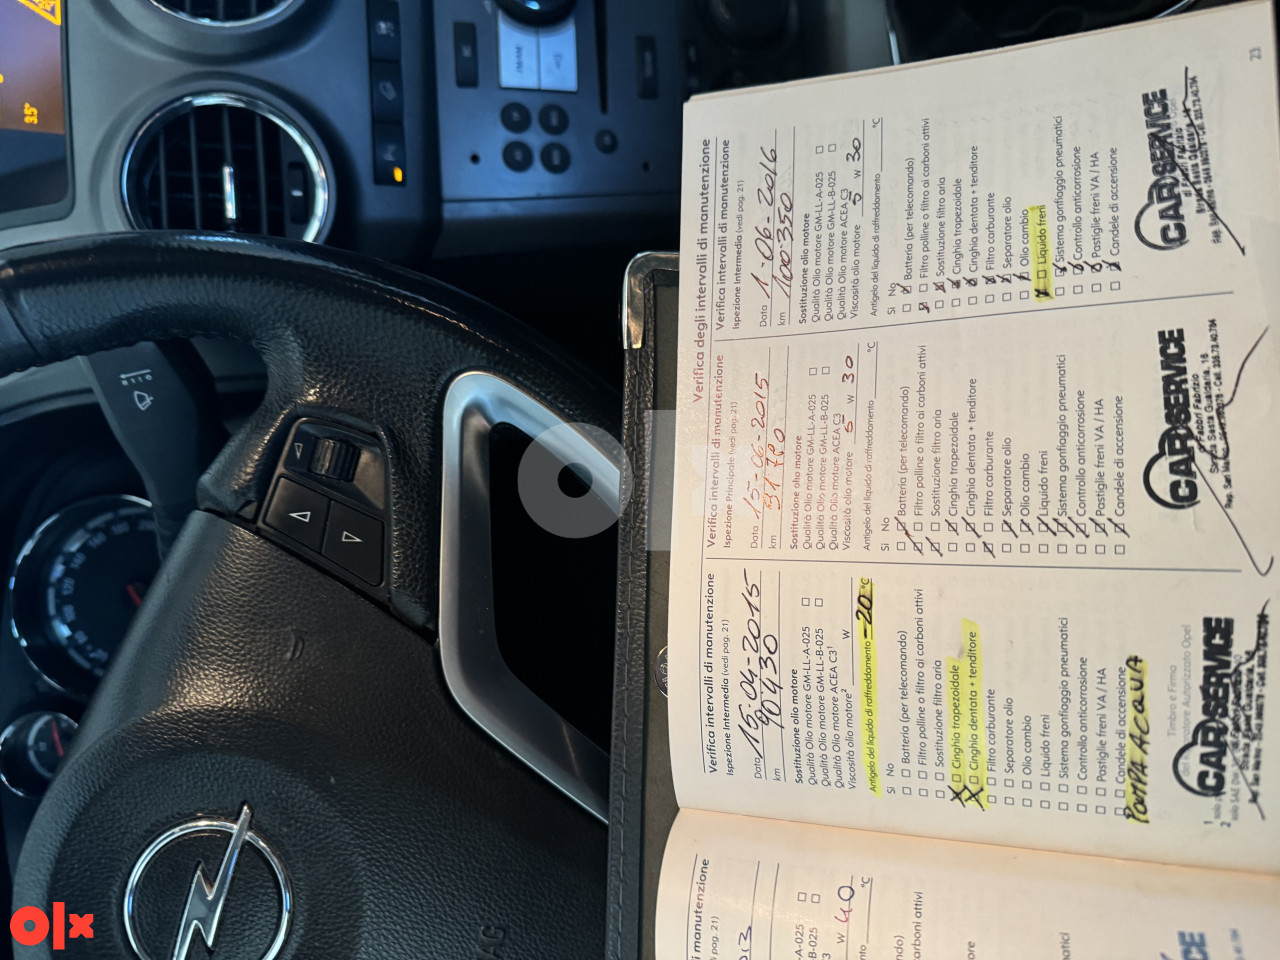 Verifica degli intervalli di manutenzione
Verifica intervalli di manutenzione
Ispezione Intermedia (vedi pag. 21)
Data 15-04-2015
km 90430
Sostituzione olio motore
Qualità Olio motore GM-LL-A-025
Qualità Olio motore GM-LL-B-025
Qualità Olio motore ACEA C3¹
Viscosità olio motore² W
Antigelo del liquido di raffreddamento -20 °C
Sì No
Batteria (per telecomando)
Filtro polline o filtro ai carboni attivi
Sostituzione filtro aria
Cinghia trapezoidale
Cinghia dentata + tenditore
Filtro carburante
Separatore olio
Olio cambio
Liquido freni
Sistema gonfiaggio pneumatici
Controllo anticorrosione
Pastiglie freni VA / HA
Candele di accensione
POMPA ACQUA
Timbro e Firma
Riparatore Autorizzato Opel
CAR SERVICE
Verifica intervalli di manutenzione
Ispezione Principale (vedi pag. 21)
Data 15-06-2015
km
Sostituzione olio motore
Qualità Olio motore GM-LL-A-025
Qualità Olio motore GM-LL-B-025
Qualità Olio motore ACEA C3
Viscosità olio motore 5 W 30
Antigelo del liquido di raffreddamento °C
Sì No
Batteria (per telecomando)
Filtro polline o filtro ai carboni attivi
Sostituzione filtro aria
Cinghia trapezoidale
Cinghia dentata + tenditore
Filtro carburante
Separatore olio
Olio cambio
Liquido freni
Sistema gonfiaggio pneumatici
Controllo anticorrosione
Pastiglie freni VA / HA
Candele di accensione
CAR SERVICE
di Fabbri Fabrizio
Verifica intervalli di manutenzione
Ispezione Intermedia (vedi pag. 21)
Data 1-06-2016
km 100350
Sostituzione olio motore
Qualità Olio motore GM-LL-A-025
Qualità Olio motore GM-LL-B-025
Qualità Olio motore ACEA C3
Viscosità olio motore 5 W 30
Antigelo del liquido di raffreddamento °C
Sì No
Batteria (per telecomando)
Filtro polline o filtro ai carboni attivi
Sostituzione filtro aria
Cinghia trapezoidale
Cinghia dentata + tenditore
Filtro carburante
Separatore olio
Olio cambio
Liquido freni
Sistema gonfiaggio pneumatici
Controllo anticorrosione
Pastiglie freni VA / HA
Candele di accensione
CAR SERVICE
di Fabbri Fabrizio
23
manutenzione
pag. 21)
W 40
°C
carboni attivi
3.5°
olx